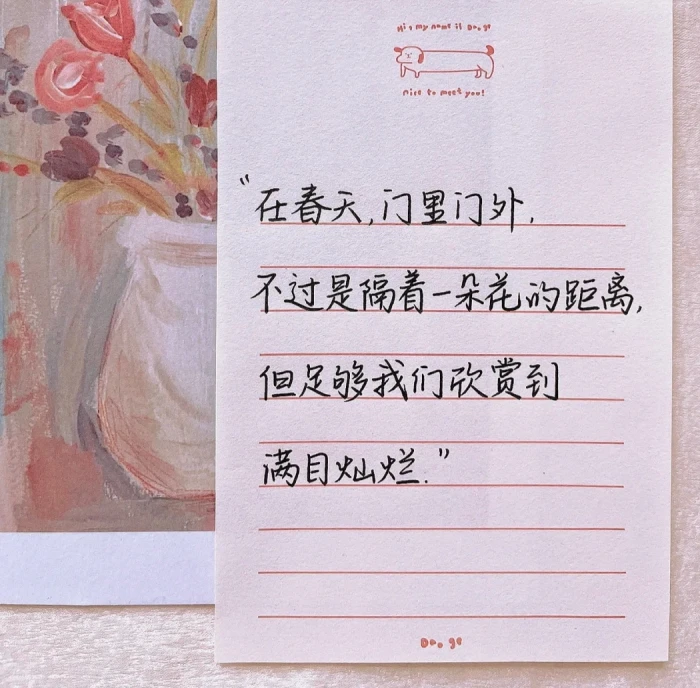 Hi, my name is Dao.ge
nice to meet you!
"在春天,门里门外,
不过是隔着一朵花的距离,
但足够我们欣赏到
满目灿烂."
Dao.ge